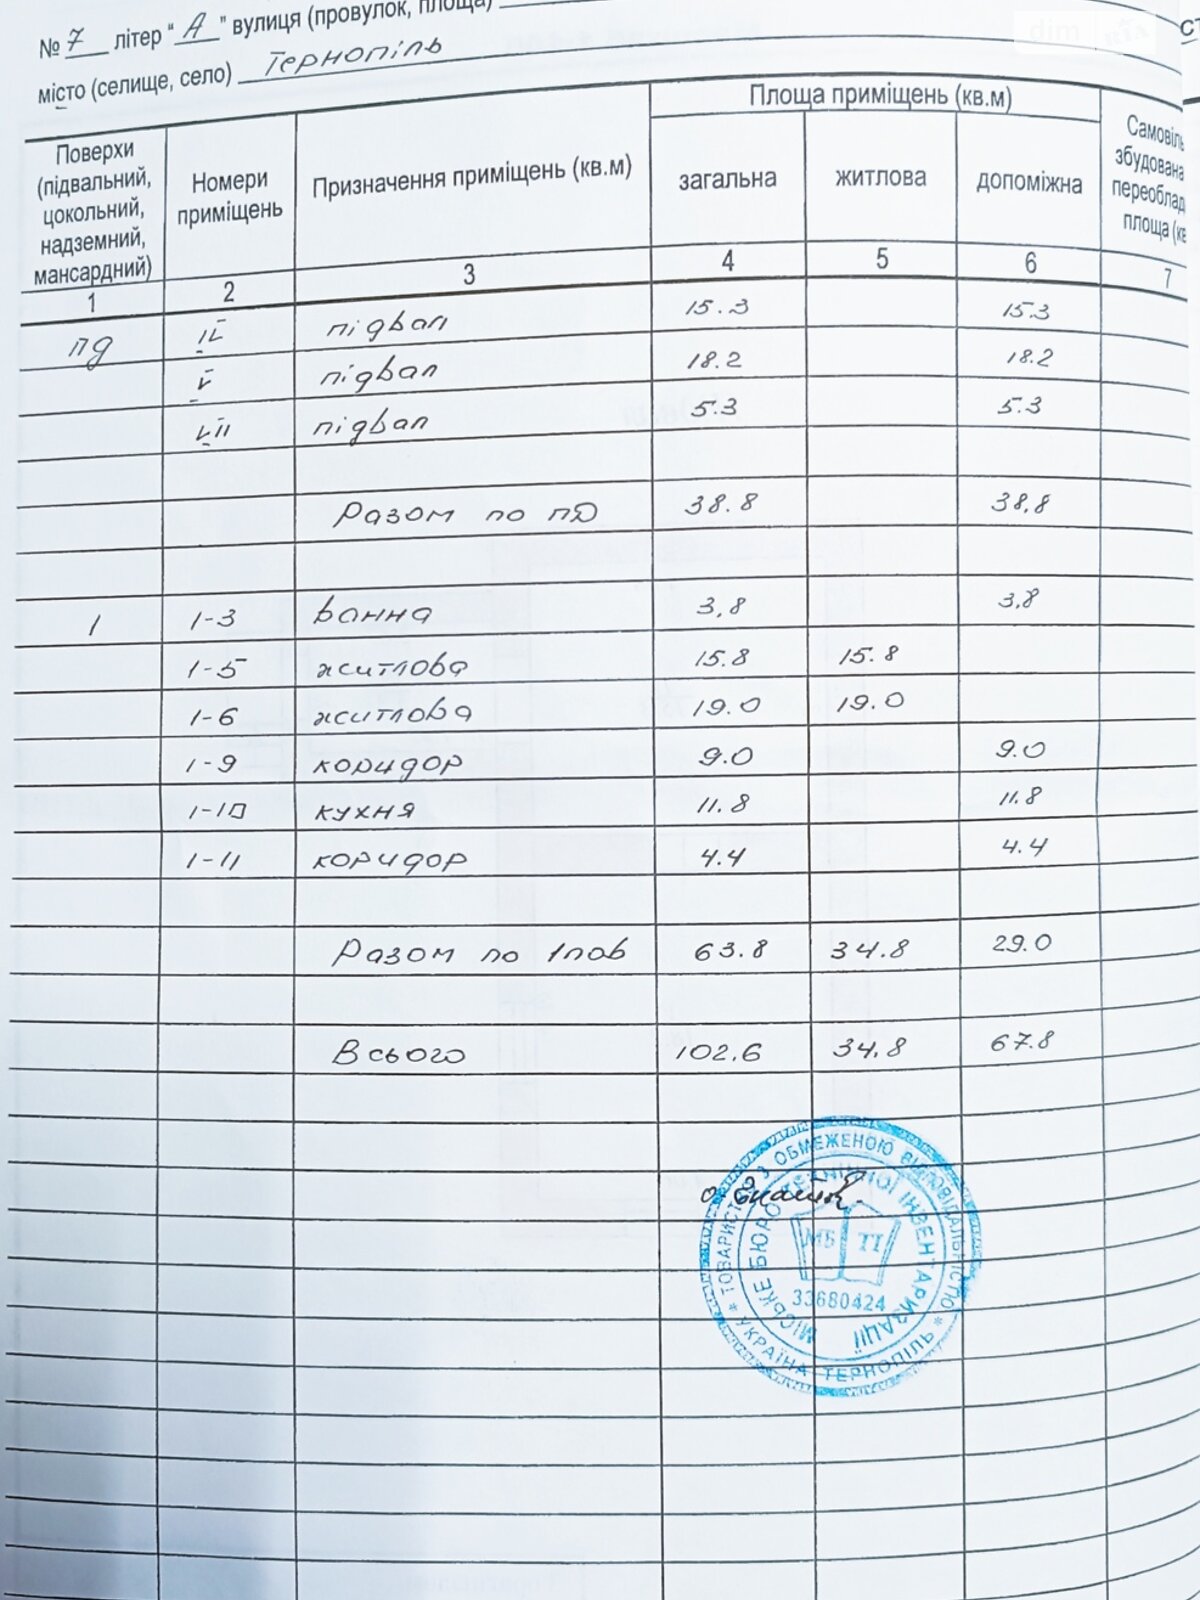 № 7 літер "А" вулиця (провулок, площа)
місто (селище, село) Тернопіль
Поверхи (підвальний, цокольний, надземний, мансардний) Номери приміщень Призначення приміщень (кв.м) Площа приміщень (кв.м)
загальна житлова допоміжна
1 2 3 4 5 6 7
пд IV підвал 15.3 15.3
V підвал 18.2 18.2
VII підвал 5.3 5.3
Разом по пд 38.8 38,8
1 1-3 ванна 3,8 3,8
1-5 житлова 15.8 15.8
1-6 житлова 19.0 19.0
1-9 коридор 9.0 9.0
1-10 кухня 11.8 11.8
1-11 коридор 4.4 4.4
Разом по 1пов 63.8 34.8 29.0
Всього 102.6 34.8 67.8
* ТОВАРИСТВО З ОБМЕЖЕНОЮ ВІДПОВІДАЛЬНІСТЮ *
МІСЬКЕ БЮРО ТЕХНІЧНОЇ ІНВЕНТАРИЗАЦІЇ
МБ ТІ
33680424
УКРАЇНА ТЕРНОПІЛЬ
dim RIA